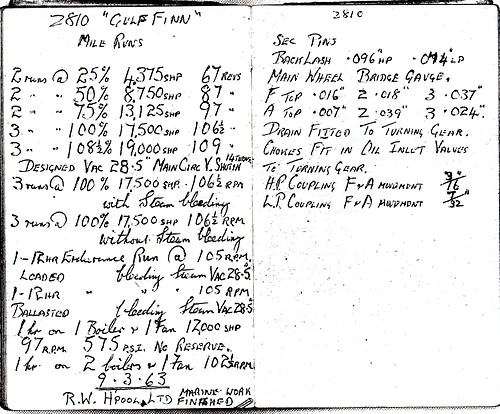 2810 "GULF FINN"
MILE RUNS
2 runs @ 25% 4,375 SHP 67 REVS
2 " " 50% 8,750 SHP 87 "
2 " " 75% 13,125 SHP 97 "
3 " " 100% 17,500 SHP 106½ "
3 " " 108½% 19,000 SHP 109 "
DESIGNED VAC 28.5" MAIN CIRC V. SHUT IN
3 runs @ 100% 17,500 SHP. 106½ RPM
with Steam bleeding
3 runs @ 100% 17,500 SHP 106½ RPM
without Steam bleeding
1-12HR Endurance Run @ 105 RPM.
LOADED bleeding Steam VAC 28.5"
1-12HR " " " 105 RPM
BALLASTED bleeding Steam VAC 28.5"
1 hr on 1 Boiler & 1 Fan 12000 SHP
97 R.P.M. 575 P.S.I. NO RESERVE.
1 hr on 2 boilers & 1 Fan 102½ RPM
9.3.63
R.W. H'POOL, LTD MARINE WORK
FINISHED
2810
SEC PINS
BACKLASH .096" HP .094" LP
MAIN WHEEL BRIDGE GAUGE.
F TOP .016" 2 .018" 3 .037"
A TOP .007" 2 .039" 3 .024"
DRAIN FITTED TO TURNING GEAR.
CHOKES FIT IN OIL INLET VALVES
TO TURNING GEAR.
H.P. COUPLING F & A MOVEMENT
L.P. COUPLING F & A MOVEMENT